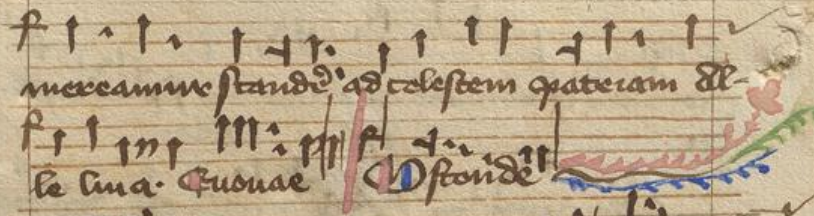 mereamur scandē ad celestem patriam All-
le luia. Euouae Ostendē